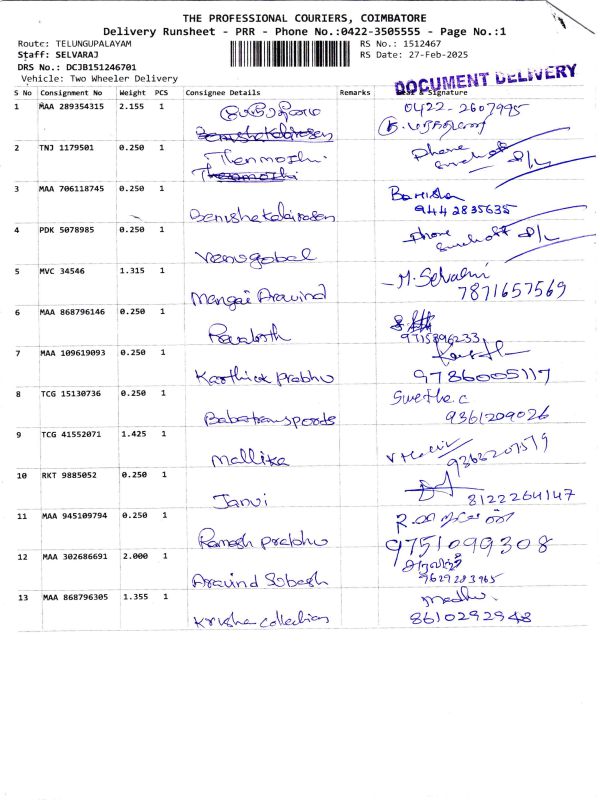 THE PROFESSIONAL COURIERS, COIMBATORE
Delivery Runsheet - PRR - Phone No.:0422-3505555 - Page No.:1
Route: TELUNGUPALAYAM RS No.: 1512467
Staff: SELVARAJ RS Date: 27-Feb-2025
DRS No.: DCJB151246701
Vehicle: Two Wheeler Delivery
DOCUMENT DELIVERY
S No Consignment No Weight PCS Consignee Details Remarks & Signature
1 MAA 289354315 2.155 1 0422-2607995
2 TNJ 1179501 0.250 1 Thenmozhi Phone
Thenmozhi
3 MAA 706118745 0.250 1
9442835635
4 PDK 5078985 0.250 1 Phone
Venugobal
5 MVC 34546 1.315 1 M. Selvalni
Mangai Aravind 7871657569
6 MAA 868796146 0.250 1
9715896233
7 MAA 109619093 0.250 1
Karthick prabhu 9786005117
8 TCG 15130736 0.250 1 Swetha.c
Babatransports 9361209026
9 TCG 41552071 1.425 1
Mallika
10 RKT 9885052 0.250 1
Janvi 8122264147
11 MAA 945109794 0.250 1
Ramesh prabhu 9751099308
12 MAA 302686691 2.000 1 அரவிந்த்
Aravind Subash 9629283965
13 MAA 868796305 1.355 1 Madhu
Krisha collections 8610292948